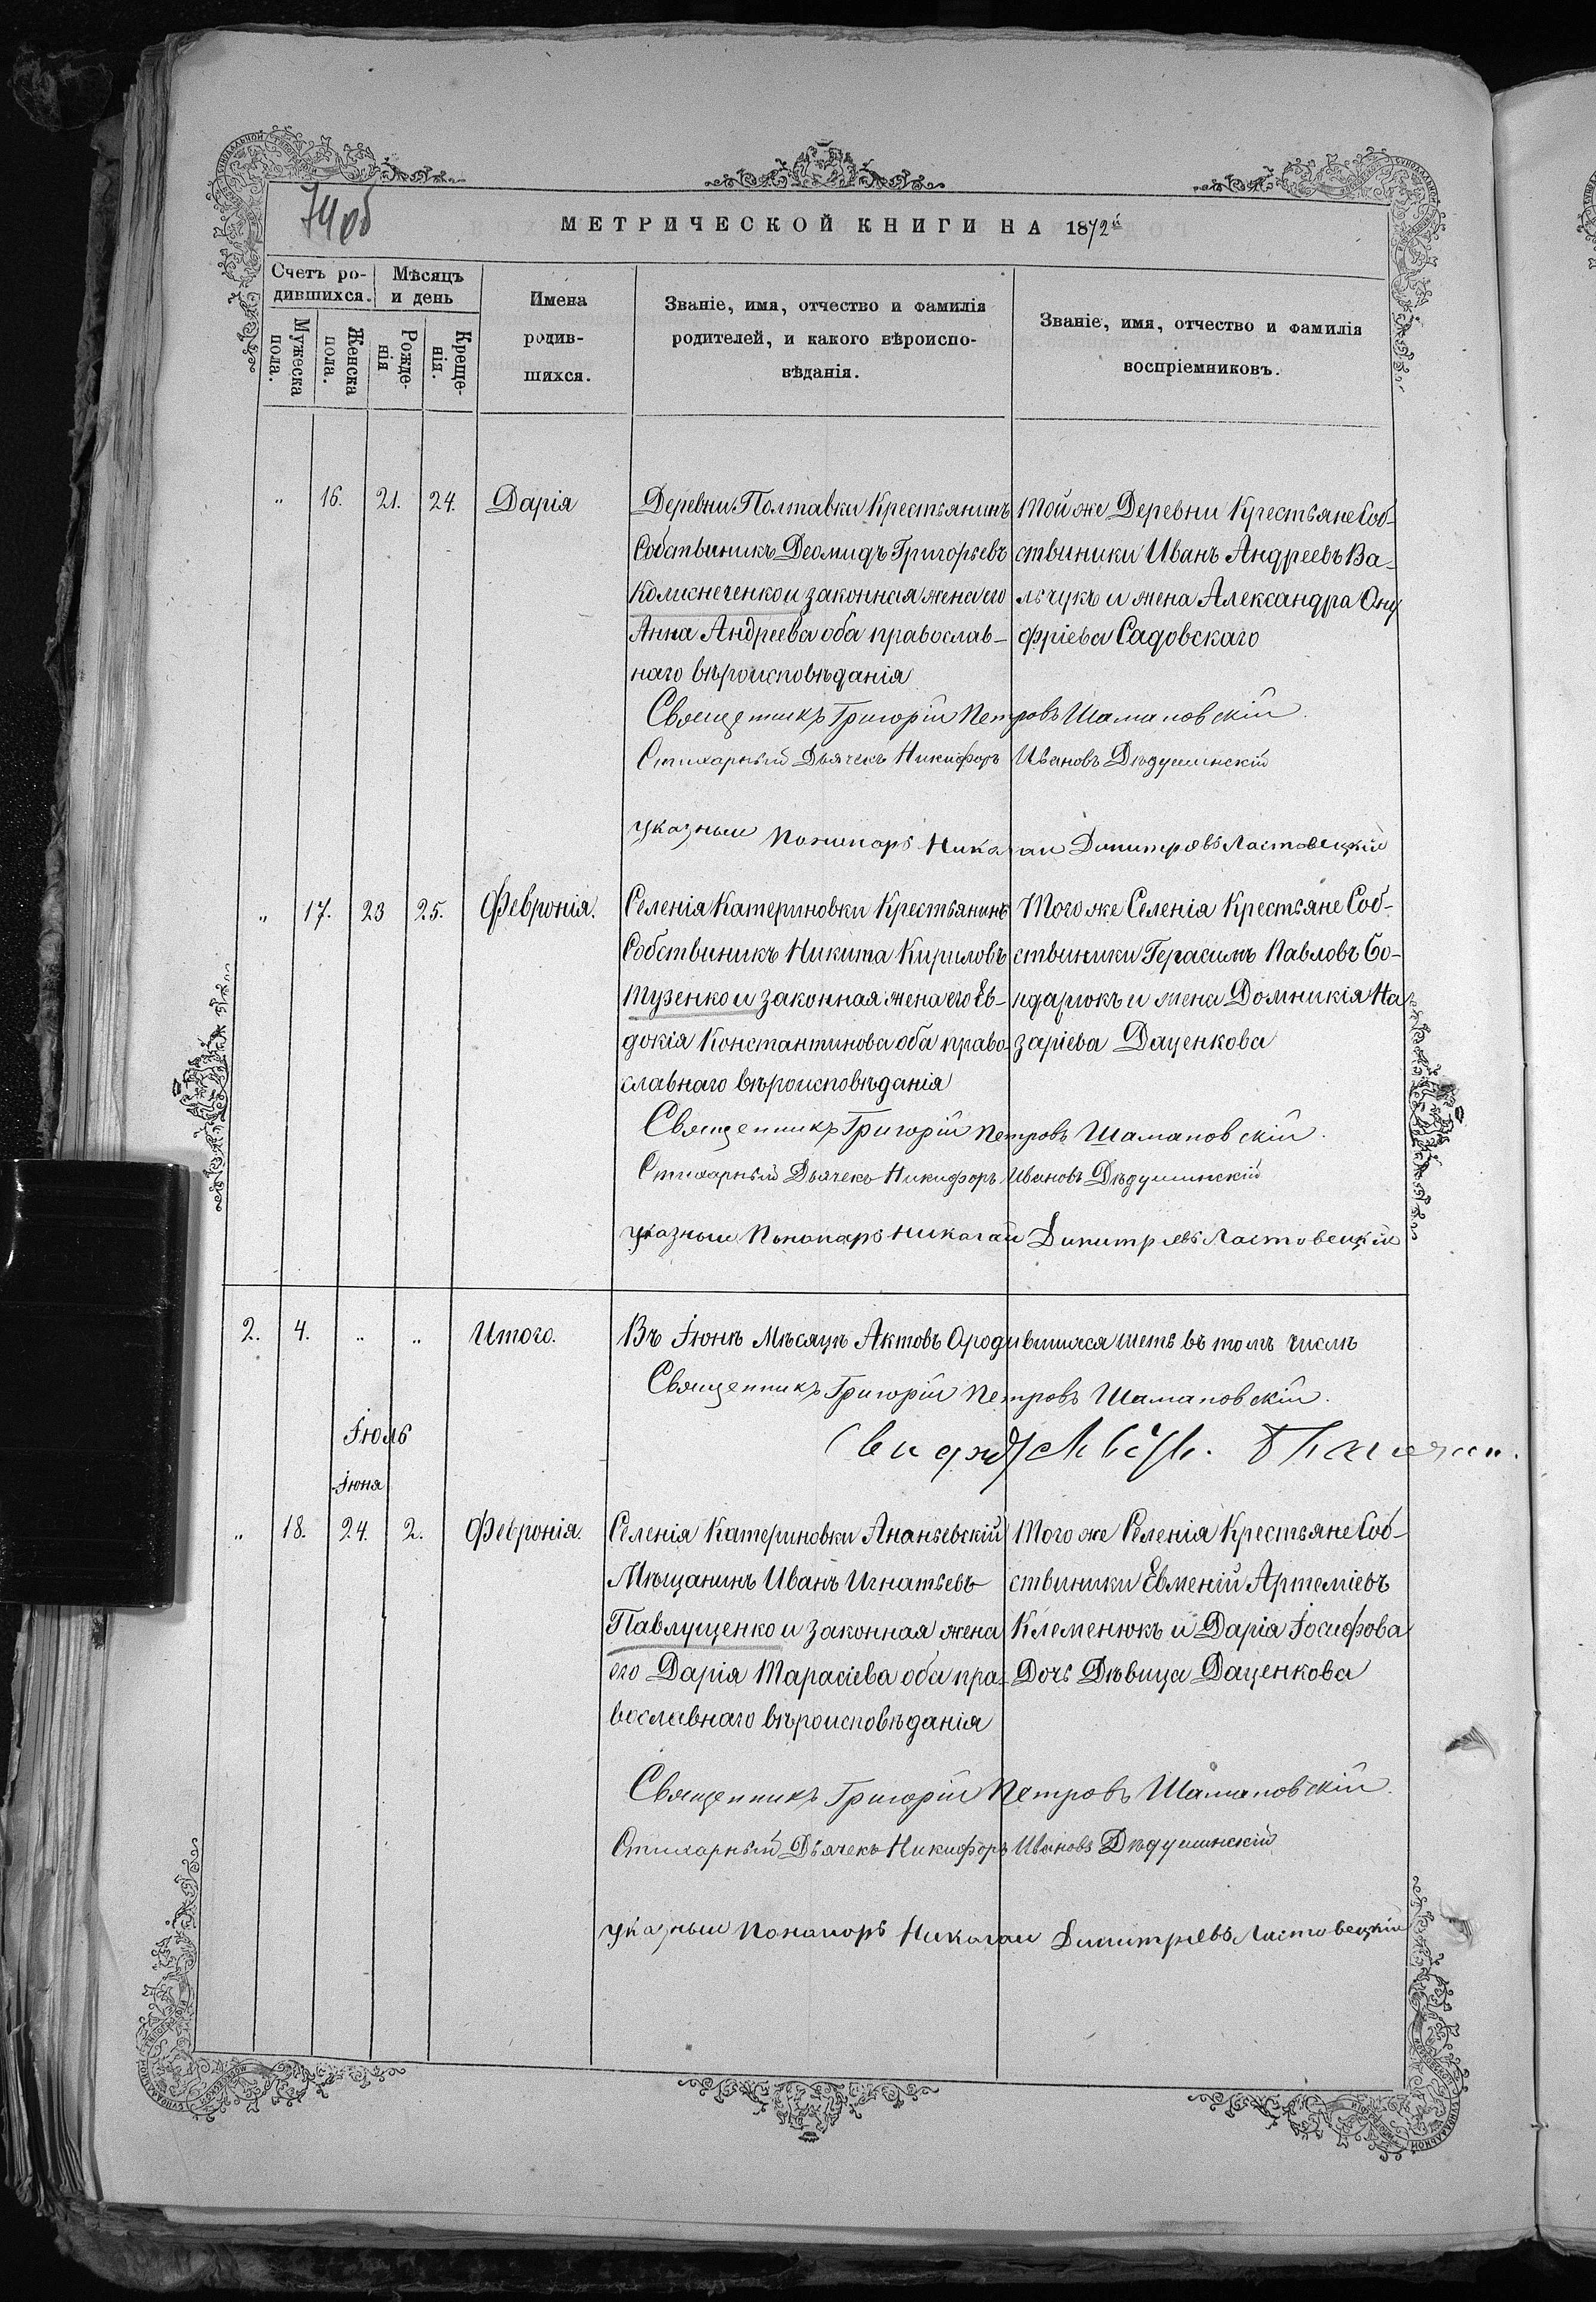 74об
МЕТРИЧЕСКОЙ КНИГИ НА 1872й
Счетъ ро-
дившихся.
Мѣсяцъ
и день
Мужеска
пола.
Женска
пола.
Рожде-
нія
Креще-
нія.
Имена
родив-
шихся.
Званіе, имя, отчество и фамилія
родителей, и какого вѣроиспо-
вѣданія.
Званіе, имя, отчество и фамилія
воспріемниковъ.
„ 16. 21. 24. Дарія
Деревни Полтавки Крестьянинъ
Собствиникъ Деомидъ Григорьевъ
Колисниченко и законная жена его
Анна Андреева оба православ-
наго вѣроисповѣданія
Той же Деревни Крестьяне Соб-
ствиники Иванъ Андреевъ Ва-
льчукъ и жена Александра Ону
фріева Садовскаго
Священникъ Григорій Петровъ Шамановскій.
Стихарный Дьячекъ Никифоръ Ивановъ Дѣдушинскій
указный Пономарь Николай Димитріевъ Ластовецкій
„ 17. 23 25. Февронія.
Селенія Катериновки Крестьянинъ
Собствиникъ Никита Кириловъ
Тузенко и законная жена его Ев-
докія Константинова оба право
славнаго вѣроисповѣданія
Того же Селенія Крестьяне Соб-
ствиники Герасимъ Павловъ Бо-
ндарюкъ и жена Домникія На
заріева Даценкова
Священникъ Григорій Петровъ Шамановскій.
Стихарный Дьячекъ Никифоръ Ивановъ Дѣдушинскій
указный Пономарь Николай Димитріевъ Ластовецкій
2. 4. „ „ Итого.
Въ Іюнѣ Мѣсяцѣ Актовъ О родившихся шеть въ томъ числѣ
Священникъ Григорій Петровъ Шамановскій.
Іюль
Іюня
„ 18. 24. 2. Февронія.
Селенія Катериновки Ананьевскій
Мѣщанинъ Иванъ Игнатьевъ
Павлущенко и законная жена
его Дарія Тарасіева оба пра-
вославнаго вѣроисповѣданія
Того же Селенія Крестьяне Соб-
ствиники Евменій Артеміевъ
Клеменюкъ и Дарія Іосифова
Дочь Дѣвица Даценкова
Священникъ Григорій Петровъ Шамановскій.
Стихарный Дьячекъ Никифоръ Ивановъ Дѣдушинскій
указный Пономорь Николай Димитріевъ Ластовецкій